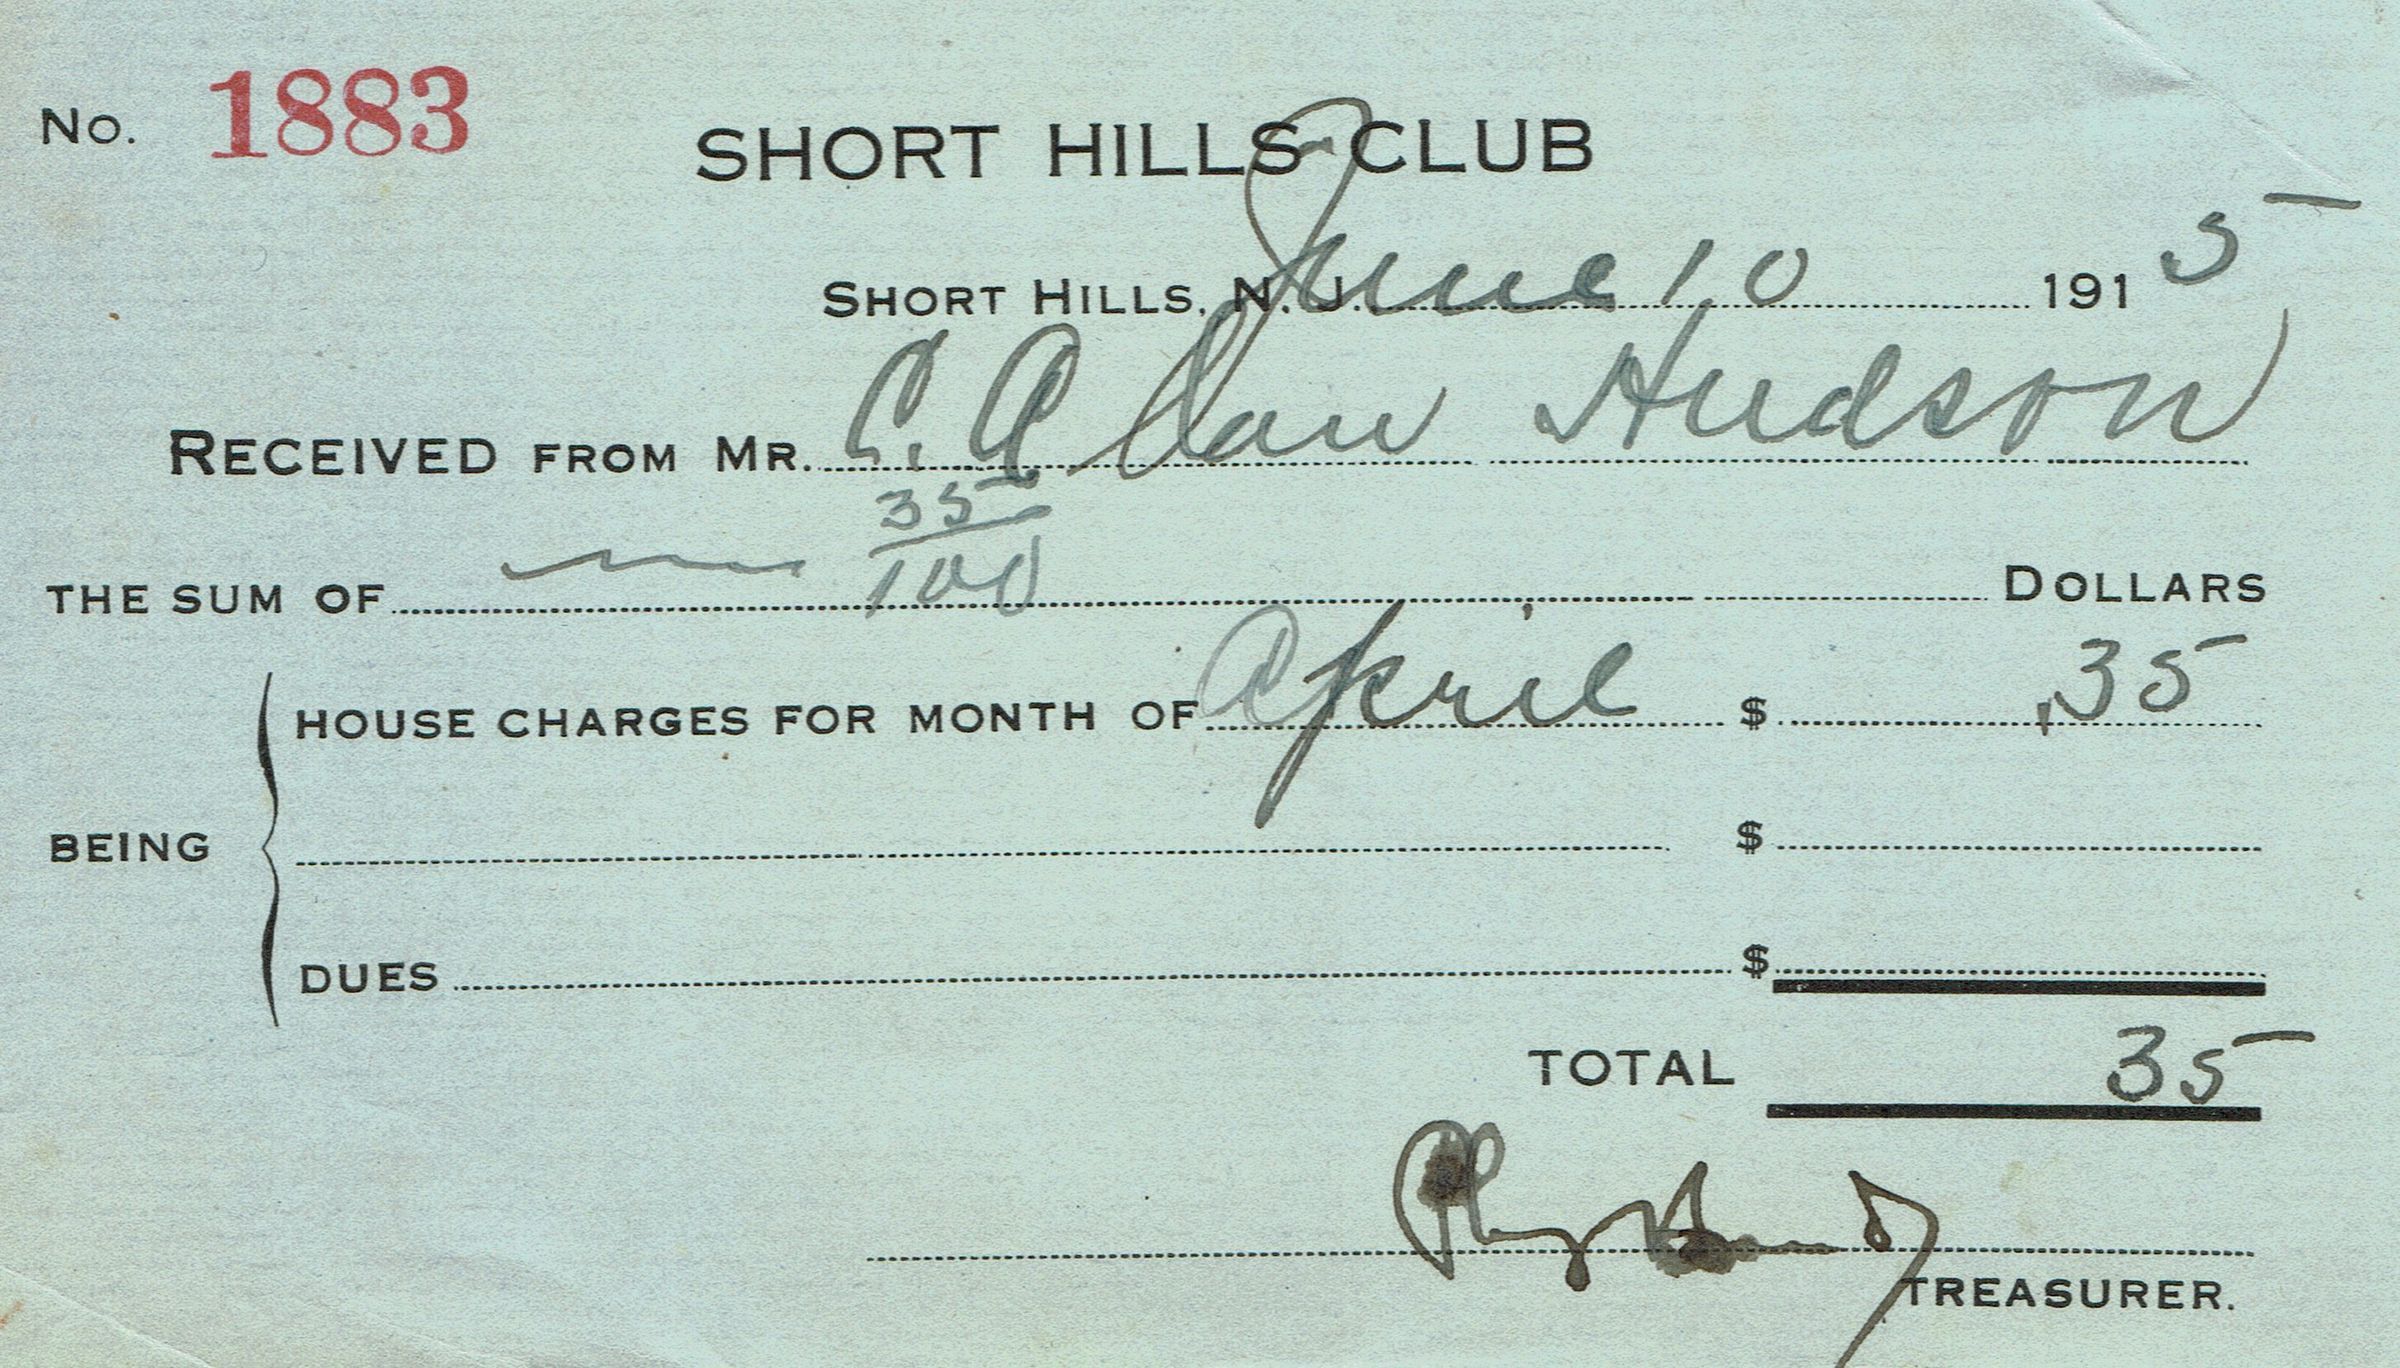 No. 1883
SHORT HILLS CLUB
SHORT HILLS, N. J. June 10 1915
RECEIVED FROM MR. C. A. Van Hudson
THE SUM OF 35/100 DOLLARS
BEING
HOUSE CHARGES FOR MONTH OF April $ .35
$
DUES $
TOTAL 35
TREASURER.